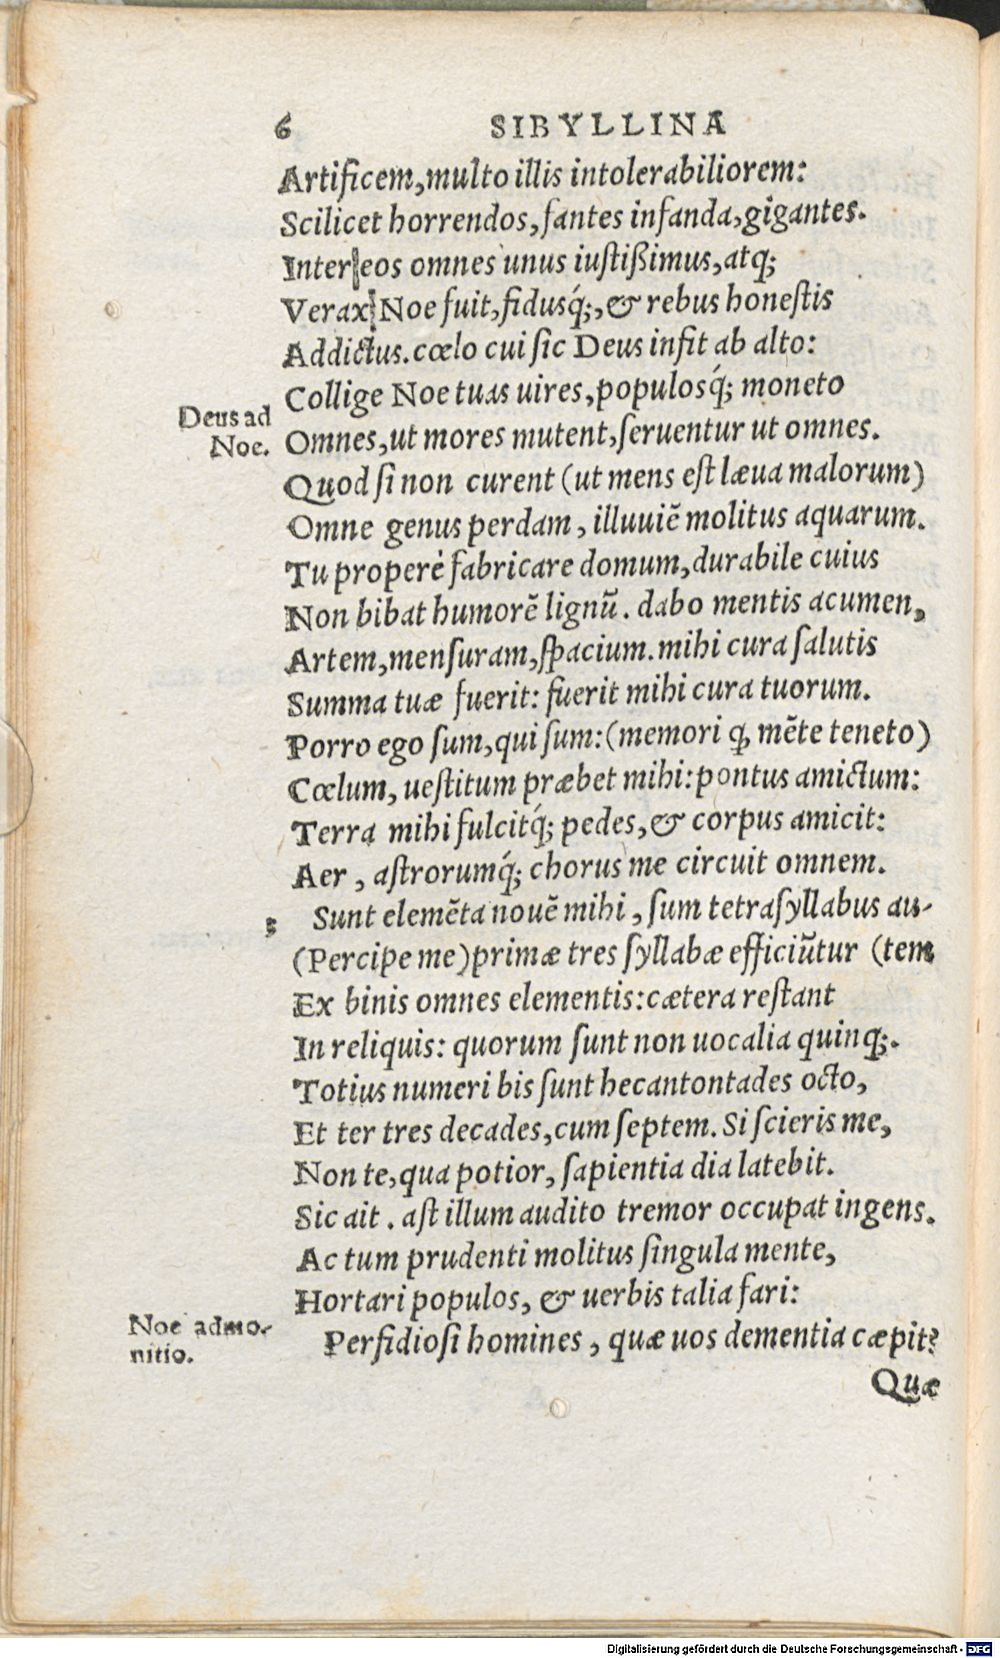 6 SIBYLLINA
Artificem,multo illis intolerabiliorem:
Scilicet horrendos,fantes infanda,gigantes.
Inter eos omnes unus iustißimus,atq;
Verax Noe fuit,fidusq́;,& rebus honestis
Addictus.cœlo cui sic Deus infit ab alto:
Collige Noe tuas uires,populosq́; moneto
Deus ad
Noe.
Omnes,ut mores mutent,seruentur ut omnes.
Quod si non curent (ut mens est læua malorum)
Omne genus perdam, illuuiẽ molitus aquarum.
Tu properè fabricare domum,durabile cuius
Non bibat humorẽ lignũ. dabo mentis acumen,
Artem,mensuram,spacium.mihi cura salutis
Summa tuæ fuerit: fuerit mihi cura tuorum.
Porro ego sum,qui sum:(memori q; mẽte teneto)
Cœlum, uestitum præbet mihi:pontus amictum:
Terra mihi fulcitq́; pedes,& corpus amicit:
Aer, astrorumq́; chorus me circuit omnem.
; Sunt elemẽta nouẽ mihi, sum tetrasyllabus au-
(Percipe me)primæ tres syllabæ efficiũtur (tem
Ex binis omnes elementis:cætera restant
In reliquis: quorum sunt non uocalia quinq;.
Totius numeri bis sunt hecantontades octo,
Et ter tres decades,cum septem. Si scieris me,
Non te,qua potior, sapientia dia latebit.
Sic ait. ast illum audito tremor occupat ingens.
Ac tum prudenti molitus singula mente,
Hortari populos, & uerbis talia fari:
Noe admo-
nitio.
Perfidiosi homines, quæ uos dementia cæpit?
Quæ
Digitalisierung gefördert durch die Deutsche Forschungsgemeinschaft - DFG